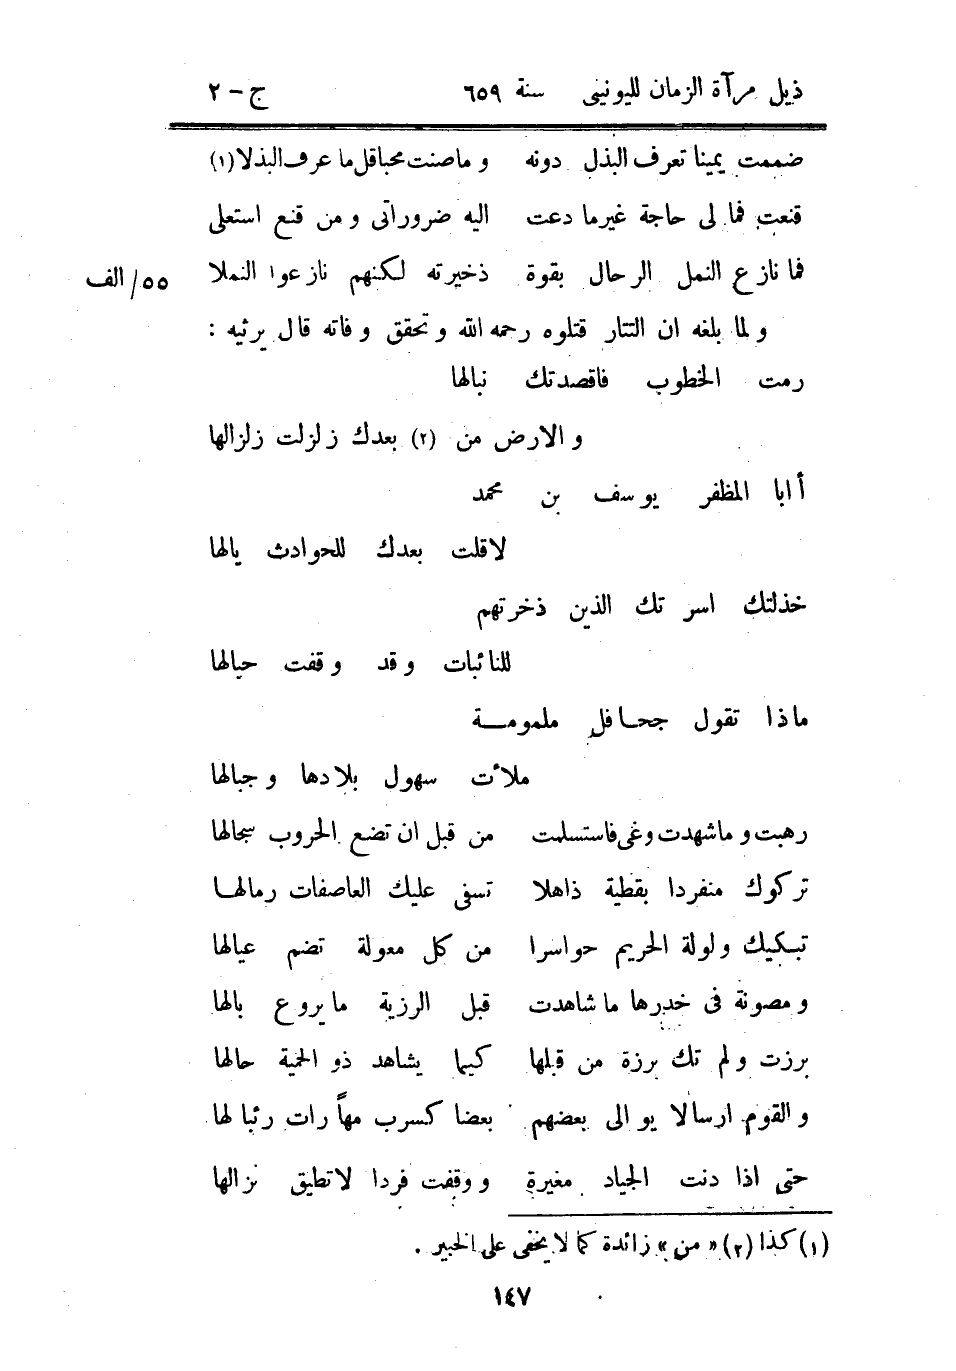 ذيل مرآة الزمان لليونينى    سنة ٦٥٩    ج - ٢
ضممت يمينا تعرف البذل دونه    و ما صنت محبا قل ما عرف البذلا (١)
قنعت فما لى حاجة غير ما دعت    اليه ضروراتى و من قنع استعلى
فما نازع النمل الرحال بقوة    ذخيرته لكنهم نازعوا النملا    ٥٥/ الف
و لما بلغه ان التتار قتلوه رحمه الله و تحقق و فاته قال يرثيه :
رمت الخطوب فاقصدتك نبالها
و الارض من (٢) بعدك زلزلت زلزالها
أابا المظفر يوسف بن محمد
لا قلت بعدك للحوادث يالها
خذلتك اسرتك الذين ذخرتهم
للنائبات و قد و قفت حيالها
ماذا تقول جحافل ملمومة
ملأت سهول بلادها و جبالها
رهبت و ما شهدت وغى فاستسلمت    من قبل ان تضع الحروب سجالها
تركوك منفردا بقطية ذاهلا    تسفى عليك العاصفات رمالها
تبكيك ولولة الحريم حواسرا    من كل معولة تضم عيالها
و مصونة فى خدرها ما شاهدت    قبل الرزية ما يروع بالها
برزت و لم تك برزة من قبلها    كيما يشاهد ذو الحمية حالها
و القوم ارسالا يوالى بعضهم    بعضا كسرب مهاً رات رئبالها
حتى اذا دنت الجياد مغيرة    و وقفت فردا لا تطيق نزالها
(١) كذا (٢) « من » زائدة كما لا يخفى على الخبير .
١٤٧